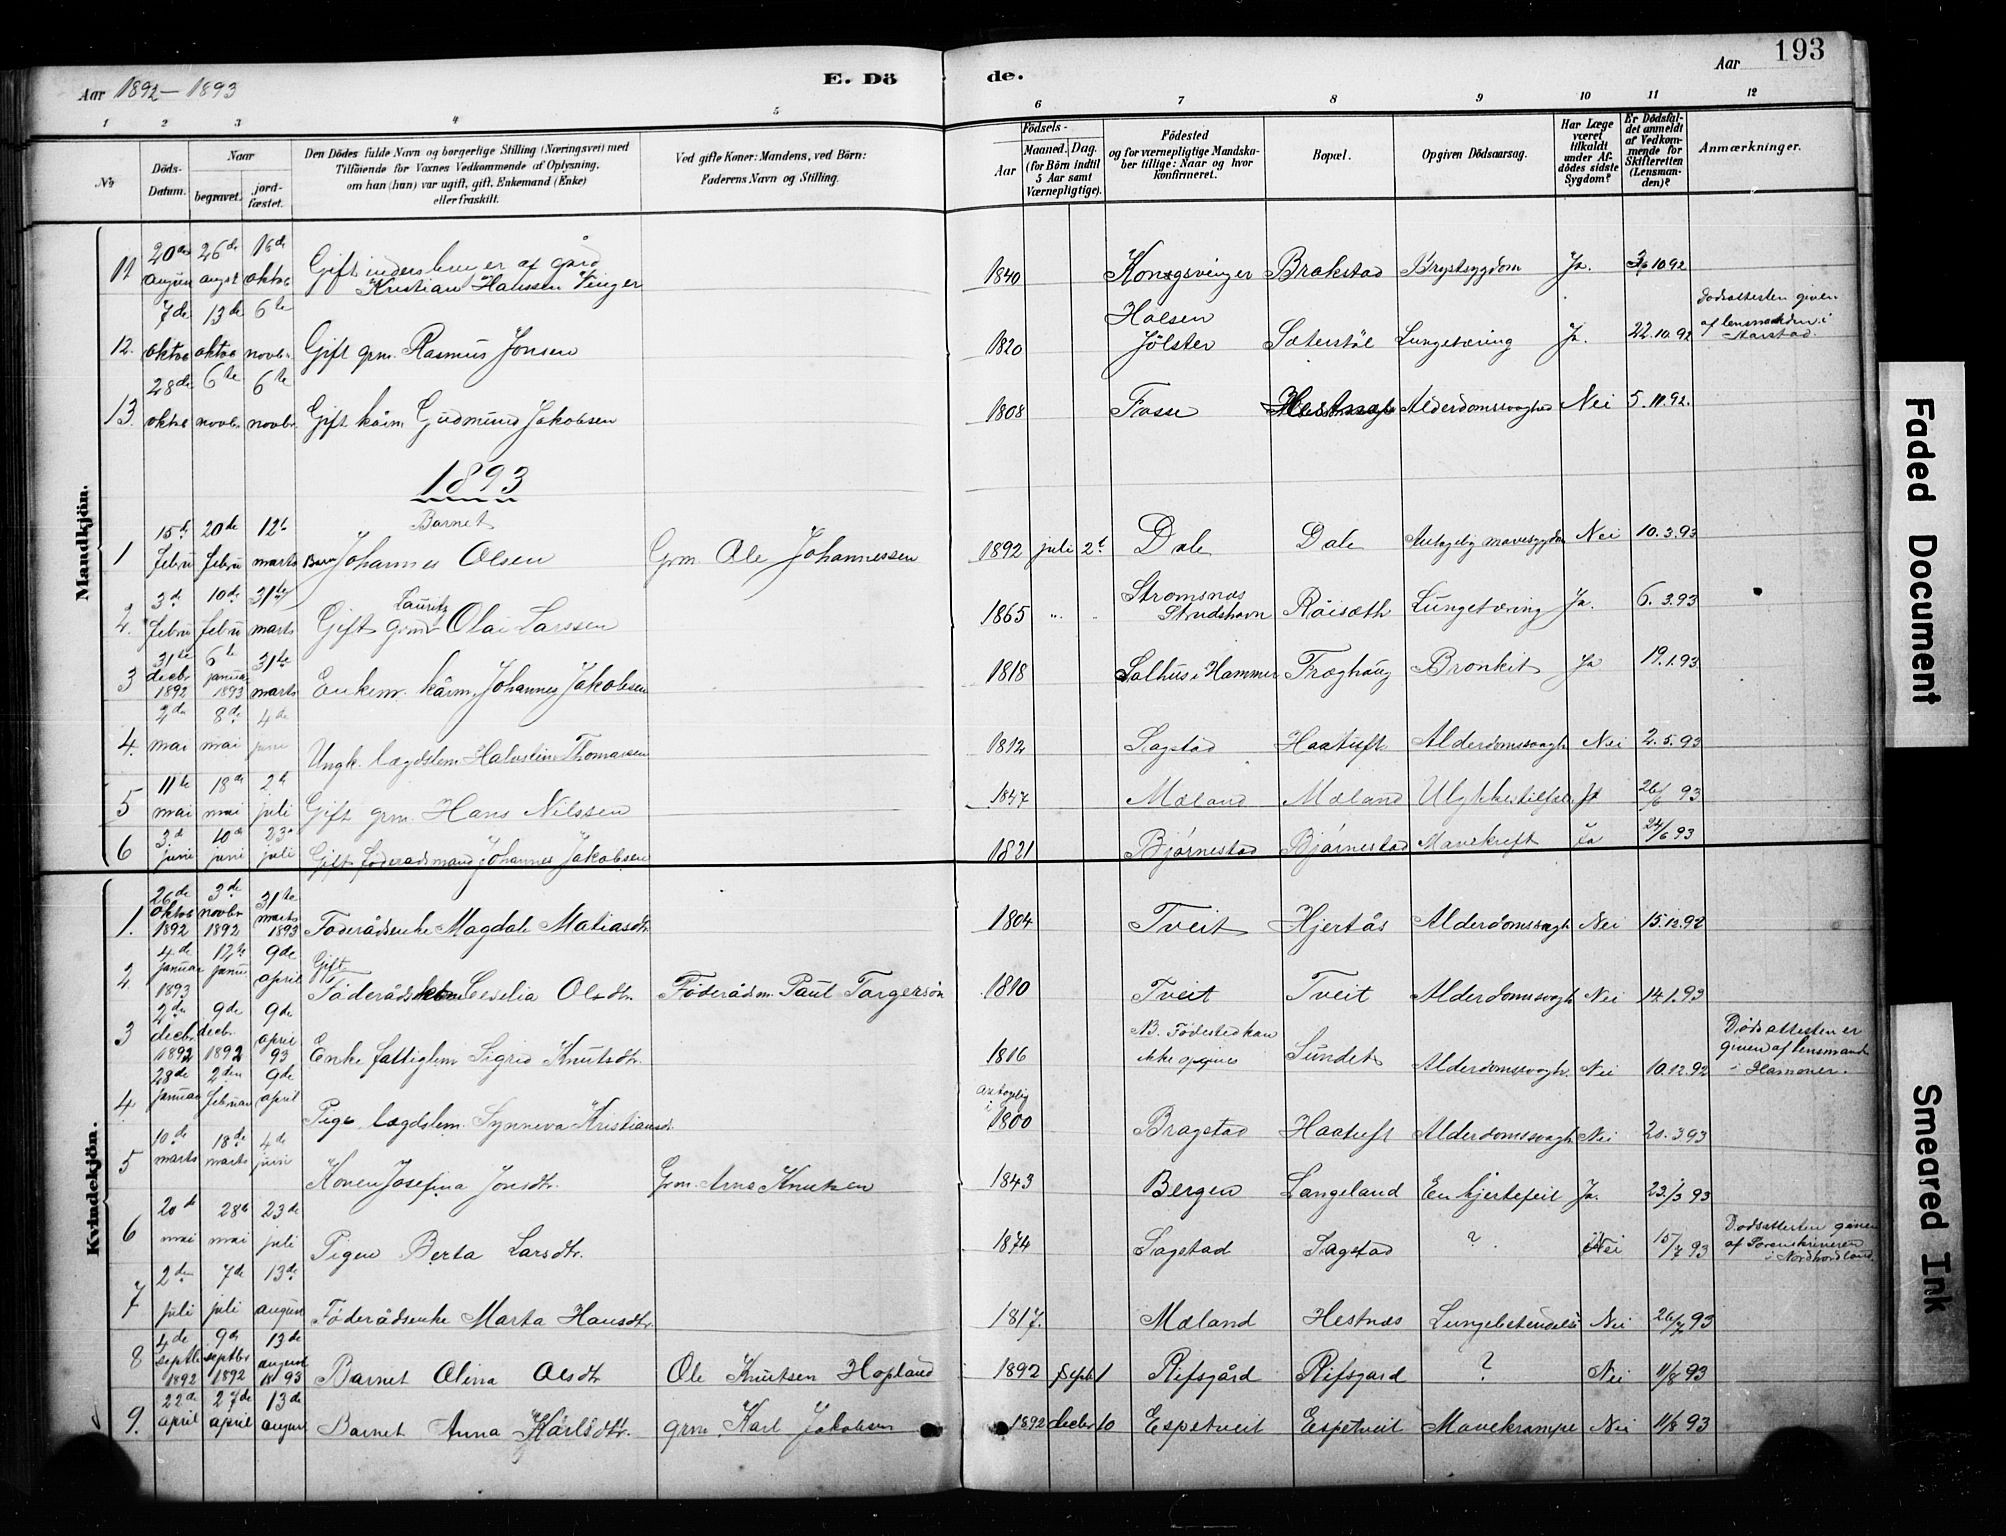 Aar 1892 – 1893
E. Dö
de.
Aar
193
1 2 3 4 5 6 7 8 9 10 11 12
No
Döds-Datum.
Naar
begravet.
jord-fæstet.
Den Dödes fulde Navn og borgerlige Stilling (Næringsvei) med
Tilföiende for Voxnes Vedkommende af Oplysning,
om han (hun) var ugift, gift, Enkemand (Enke)
eller fraskilt.
Ved gifte Koner: Mandens, ved Börn:
Faderens Navn og Stilling.
Födsels-
Aar
Maaned. Dag.
(for Börn indtil
5 Aar samt
Værnepligtige).
Födested
og for værnepligtige Mandska-
ber tillige: Naar og hvor
konfirmeret.
Bopæl.
Opgiven Dödsaarsag.
Har Læge
været
tilkaldt
under Af-
dödes sidste
Sygdom?
Er Dödsfal-
det anmeldt
af Vedkom-
mende for
Skifteretten
(Lensman-
den)?
Anmærkninger.
Mandkjön.
11 20de august 26de august 16de oktbr Gift af gård Kristian Hanssen Vinger 1840 Kongsvinger Brakstad Brystsygdom Ja. 3/10 92
12. 7de oktbr 13de oktbr 6te novbr. Gift grm. Rasmus Jonsen 1820 Holsen Jölster Sæterstöl Lungetæring Ja. 22.10.92 Dødsattesten given af lensmanden i Harstad.
13. 28de oktbr 6te novbr 6te novbr. Gift kårm. Gudmund Jakobsen 1808 Fosse Hestnæs Alderdomssvaghed Nei 5.11.92.
1893
1 15de febru 20de febru 12te marts Barnet Johannes Olsen Grm. Ole Johannessen 1892 juli 2t Dale Dale Antagelig mavesygdom Nei 10.3.93
2. 3de febru 10de febru 31te marts Gift grm. Lauritz Olai Larssen 1865 " " Stromsnæs Strudshavn Röisæth Lungetæring Ja. 6.3.93
3 31te decbr 1892 6te januar 1893 31te marts Enkem. kårm. Johannes Jakobsen 1818 Salhus i Hammer Fræghaug Bronkit Ja 19.1.93
4. 2den mai 8de mai 4de juni Ungk. lægdslem Halvstein Thomassen 1812 Sagstad Haatuft Alderdomssvagh. Nei 2.5.93
5 11te mai 18de mai 2de juli Gift grm. Hans Nilssen 1847 Mæland Mæland Ulykkestilfælde Ja 26/6 93
6 3de juni 10de juni 23de juli Gift föderådsmand Johannes Jakobsen 1821 Bjørnestad Bjørnestad Mavekreft Ja 24/6 93
Kvindekjön.
1. 26de oktbr 1892 3de novbr 1892 31te marts 1893 Föderådsenke Magdale Matiasdtr 1804 Tveit Hjertås Alderdomssvagh. Nei 15.12.92
2 4de januar 1893 12te januar 9de april Gift Föderådskone Cecelia Olsdtr. Föderådsm. Paul Torgersön 1810 Tveit Tveit Alderdomssvagh Nei 14.1.93
3 2den decbr. 1892 9de decbr. 1892 9de april 93 Enke fattiglem Sigrid Knutsdtr. 1816 NB. Födested kan ikke opgives Sundet Alderdomssvagh. Nei 10.12.92 Dødsattesten er given af lensmand i Hammer.
4 28de januar 2den februar 9de april Pige lægdslem Synneva Kristiansdt. antagelig i 1800 Bragstad Haatuft Alderdomssvagh Nei 20.3.93
5 10de marts 18de marts 4de juni Konen Josefina Jonsdtr. Grm. Arne Knutsen 1843 Bergen Langeland En hjertefeil Ja. 23/3 93
6 20de mai 28de mai 23de juli Pigen Berta Larsdtr. 1874 Sagstad Sagstad ? Nei 15/7 93 Dødsattesten given af Sorenskriveren i Nordhordland.
7 2den juli 7de juli 13de august Föderådsenke Marta Hansdtr. 1817. Mæland Hestnæs Lungebetendelse Nei 26/7 93
8 4de septbr 1892 9de septbr 1892 13de august 1893 Barnet Olina Olsdtr Ole Knutsen Hopland 1892 septb 1 Rifsgård Rifsgard ? Nei 11/8 93
9. 22de april 27de april 13de august Barnet Anna Karlsdtr. grm. Karl Jakobsen 1892 decbr 10 Espetveit Espetveit Mavekrampe Nei 11/8 93
Faded Document
Smeared Ink